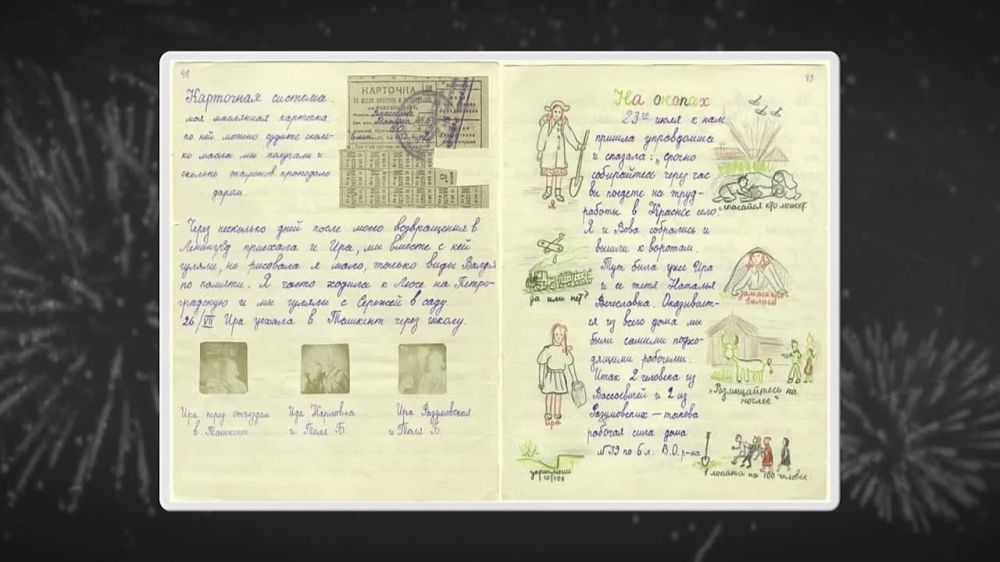 48
Карточная система.
моя маслянная карточка,
по ней можно судить сколь-
ко масла мы получали и
сколько талонов пропадало
даром.
КАРТОЧКА
Через несколько дней после моего возвращения в
Ленинград приехала и Ира, мы вместе с ней
гуляли, но рисовала я мало, только виды Валдая
по памяти. Я часто ходила к Люсе на Петро-
градскую и мы гуляли с Сережей в саду.
26/VII Ира уехала в Ташкент через школу.
Ира перед отъездом
в Ташкент
Ида Карловна
и Толя Б.
Ира Разумовская
и Толя Б.
49
На окопах
23го июля к нам
пришла управдомша
и сказала: „срочно
собирайтесь через час
вы поедете на труд-
работы в Красное село
Я и Вова собрались и
вышли к воротам.
Тут была уже Ира
и ее тетя Наталья
Вячеславовна. Оказывает-
ся из всего дома мы
были самыми подхо-
дящими рабочими.
Итак 2 человека из
и 2 из
Разумовских — такова
рабочая сила дома
№39 по 6 л. В.О. р-на
Я
да или нет?
Ира
укрепление
готово
„спасайся кто может
замаскиро-
валась
„Размещайтесь на
ночлег"
1 лопата на 100 человек.